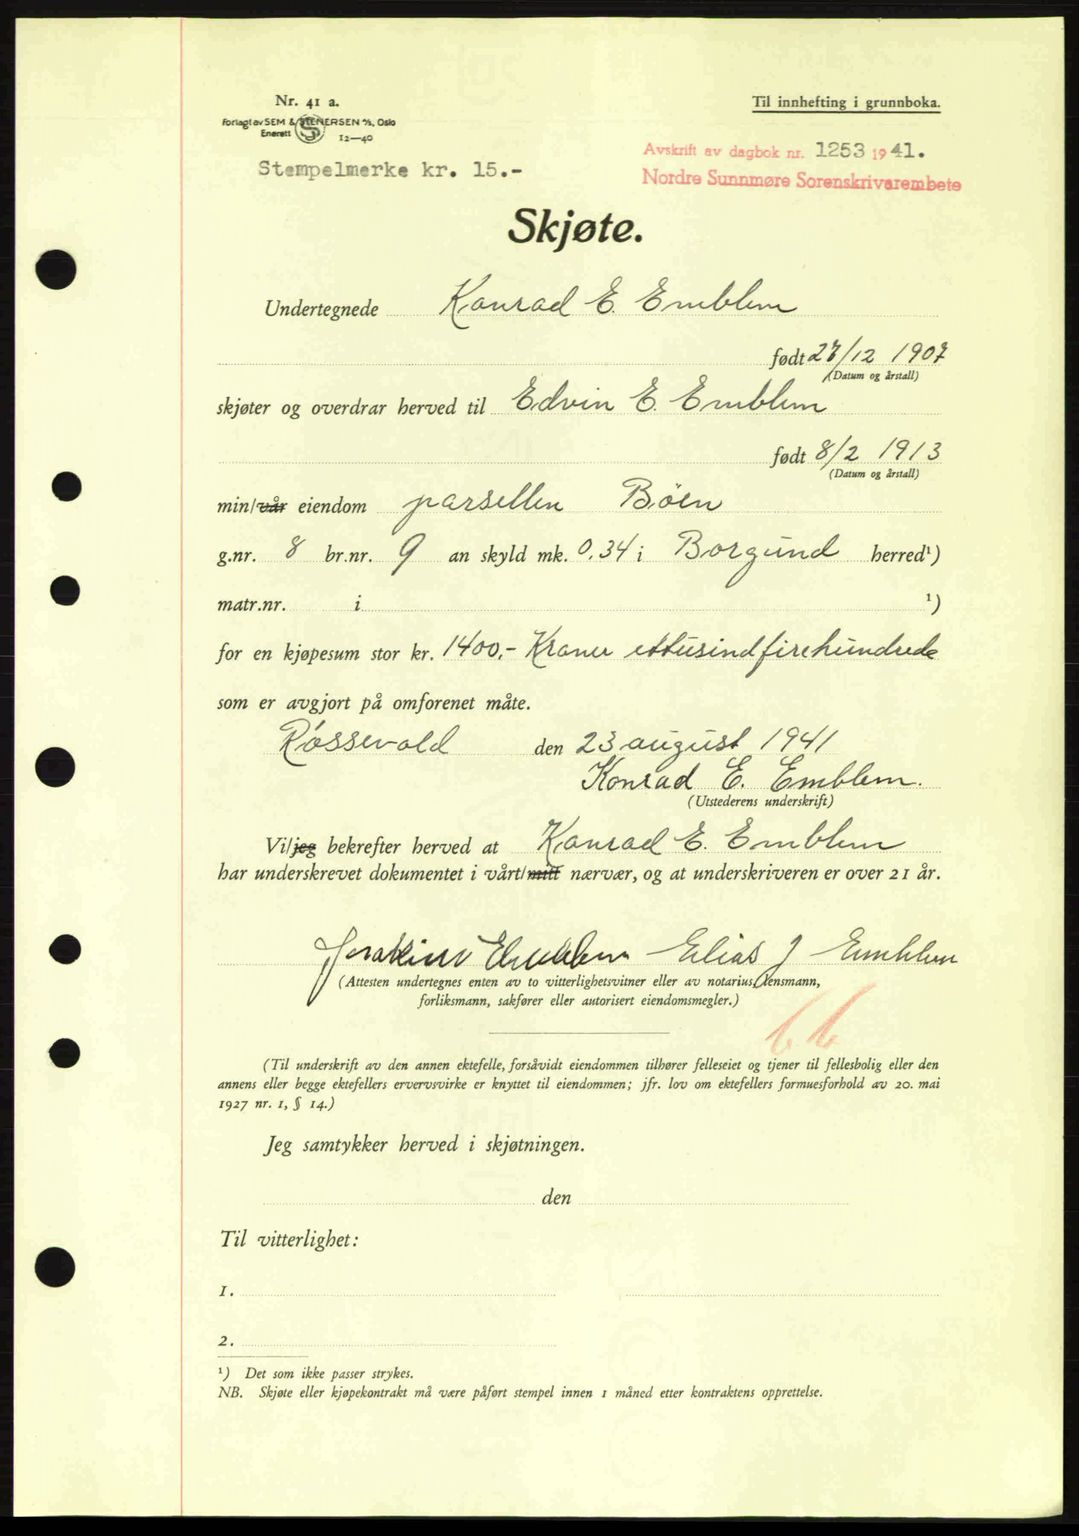 Nr. 41 a.
Forlagt av SEM & STENERSEN A/S, Oslo
Enerett
S
12—40
Til innhefting i grunnboka.
Stempelmerke kr. 15.-
Avskrift av dagbok nr. 1253 1941.
Nordre Sunnmøre Sorenskrivarembete
Skjøte.
Undertegnede Konrad E. Emblem
født 27/12 1907
(Datum og årstall)
skjøter og overdrar herved til Edvin E. Emblem
født 8/2 1913
(Datum og årstall)
min/vår eiendom parsellen Bøen
g.nr. 8 br.nr. 9 an skyld mk. 0,34 i Borgund herred¹)
matr.nr. i ¹)
for en kjøpesum stor kr. 1400,- Kroner ettusindfirehundrede
som er avgjort på omforenet måte.
Røssevold den 23 august 1941
Konrad E. Emblem.
(Utstederens underskrift)
Vi/jeg bekrefter herved at Konrad E. Emblem
har underskrevet dokumentet i vårt/mitt nærvær, og at underskriveren er over 21 år.
Emblem Elias J Emblem
(Attesten undertegnes enten av to vitterlighetsvitner eller av notarius, lensmann,
forliksmann, sakfører eller autorisert eiendomsmegler.)
(Til underskrift av den annen ektefelle, forsåvidt eiendommen tilhører felleseiet og tjener til fellesbolig eller den
annens eller begge ektefellers ervervsvirke er knyttet til eiendommen; jfr. lov om ektefellers formuesforhold av 20. mai
1927 nr. 1, § 14.)
Jeg samtykker herved i skjøtningen.
den
Til vitterlighet:
1.
2.
¹) Det som ikke passer strykes.
NB. Skjøte eller kjøpekontrakt må være påført stempel innen 1 måned etter kontraktens opprettelse.